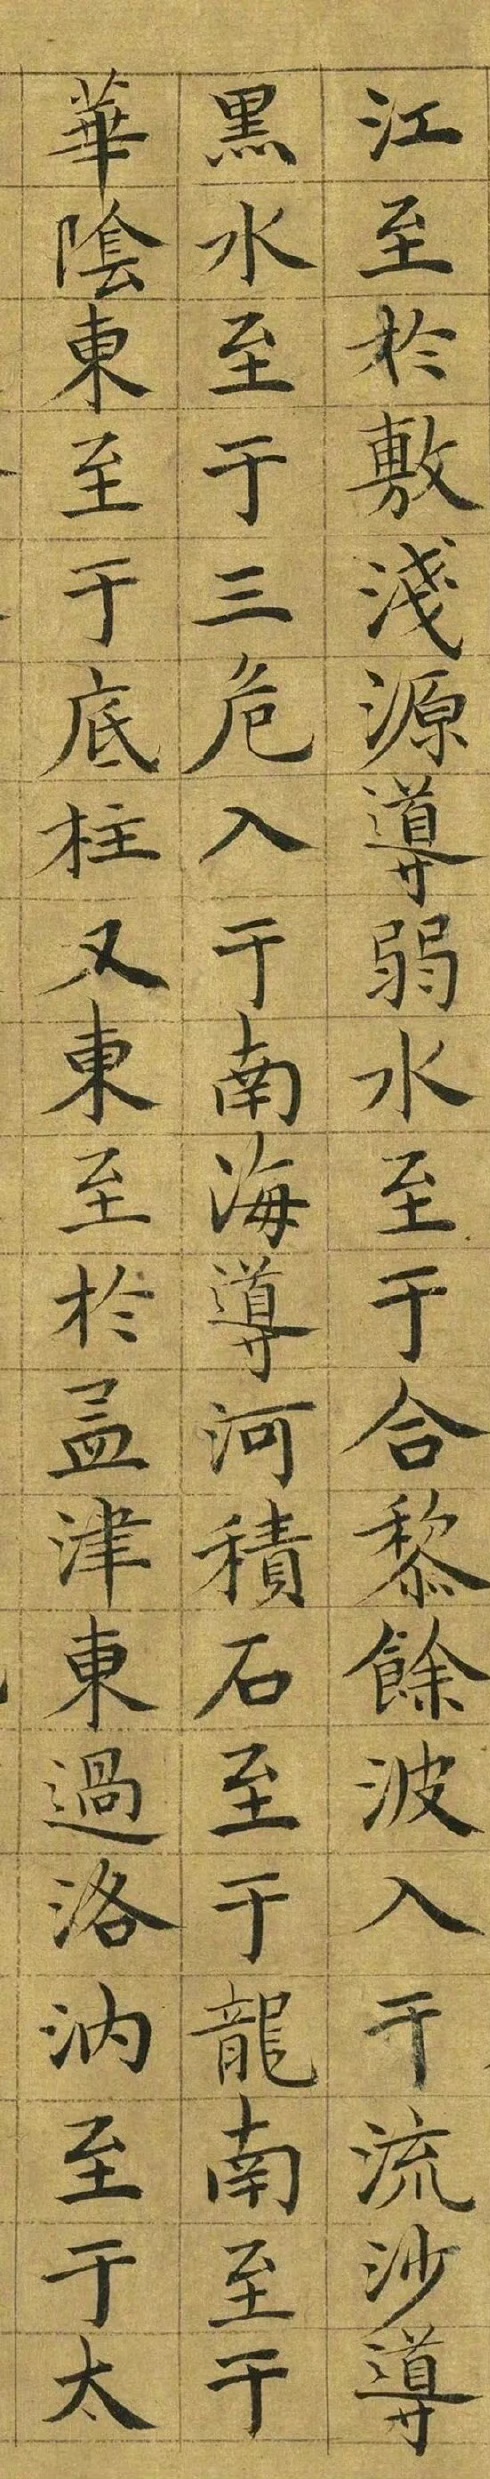 江至於敷淺源導弱水至于合黎餘波入于流沙導
黑水至于三危入于南海導河積石至于龍南至于
華陰東至于底柱又東至於孟津東過洛汭至于太